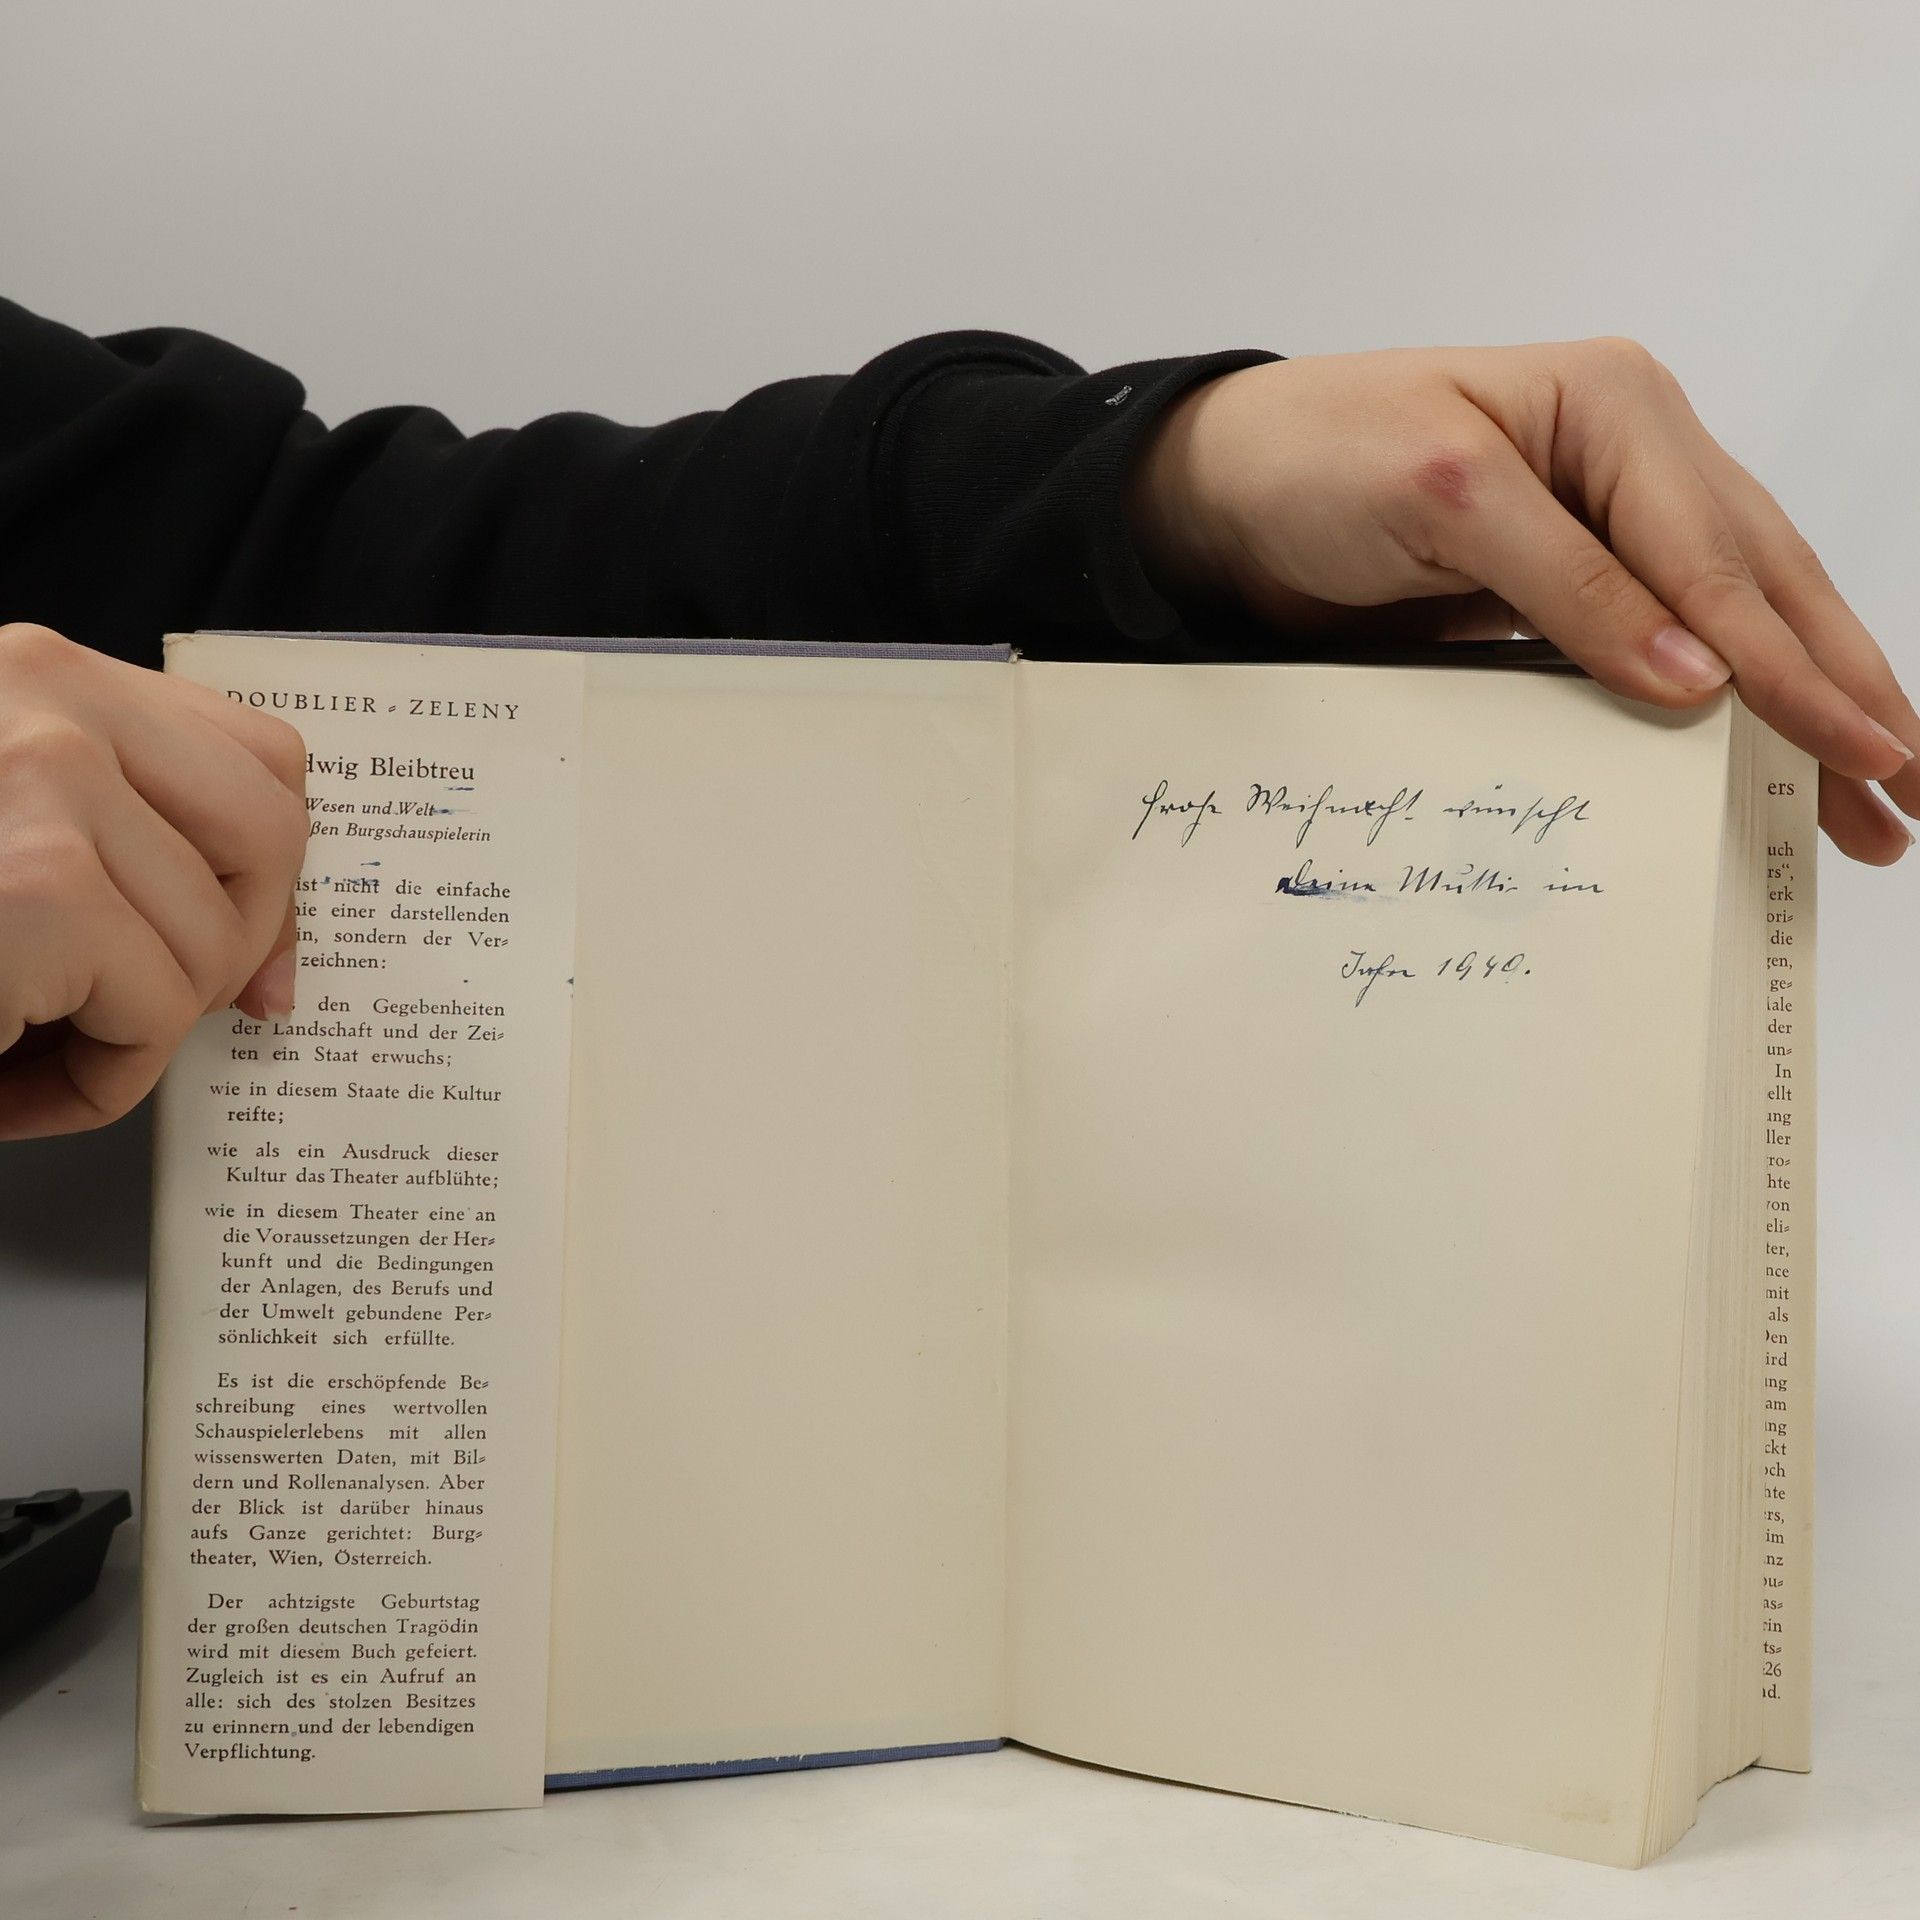 DOUBLIER ⸗ ZELENY
dwig Bleibtreu
Wesen und Welt
ßen Burgschauspielerin
ist nicht die einfache
ie einer darstellenden
in, sondern der Ver⸗
zeichnen:
den Gegebenheiten
der Landschaft und der Zei⸗
ten ein Staat erwuchs;
wie in diesem Staate die Kultur
reifte;
wie als ein Ausdruck dieser
Kultur das Theater aufblühte;
wie in diesem Theater eine an
die Voraussetzungen der Her⸗
kunft und die Bedingungen
der Anlagen, des Berufs und
der Umwelt gebundene Per⸗
sönlichkeit sich erfüllte.
Es ist die erschöpfende Be⸗
schreibung eines wertvollen
Schauspielerlebens mit allen
wissenswerten Daten, mit Bil⸗
dern und Rollenanalysen. Aber
der Blick ist darüber hinaus
aufs Ganze gerichtet: Burg⸗
theater, Wien, Österreich.
Der achtzigste Geburtstag
der großen deutschen Tragödin
wird mit diesem Buch gefeiert.
Zugleich ist es ein Aufruf an
alle: sich des stolzen Besitzes
zu erinnern und der lebendigen
Verpflichtung.
frohe Weihnacht wünscht
Deine Mutti im
Jahre 1949.
ers
uch
rs“,
erk
ori⸗
die
gen,
ge⸗
ale
der
un⸗
In
ellt
ung
ller
ro⸗
hte
von
eli⸗
ter,
nce
mit
als
Den
ird
ung
am
ung
ckt
och
hte
ers,
im
nz
ou⸗
as⸗
rin
ts⸗
26
nd.